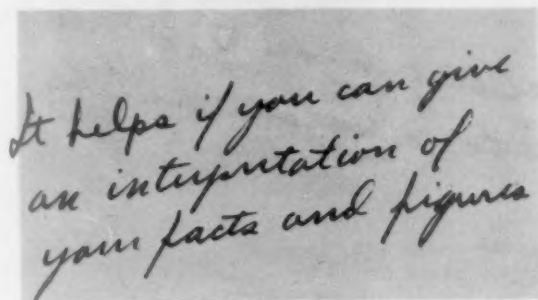 It helps if you can give
an interpretation of
your facts and figures